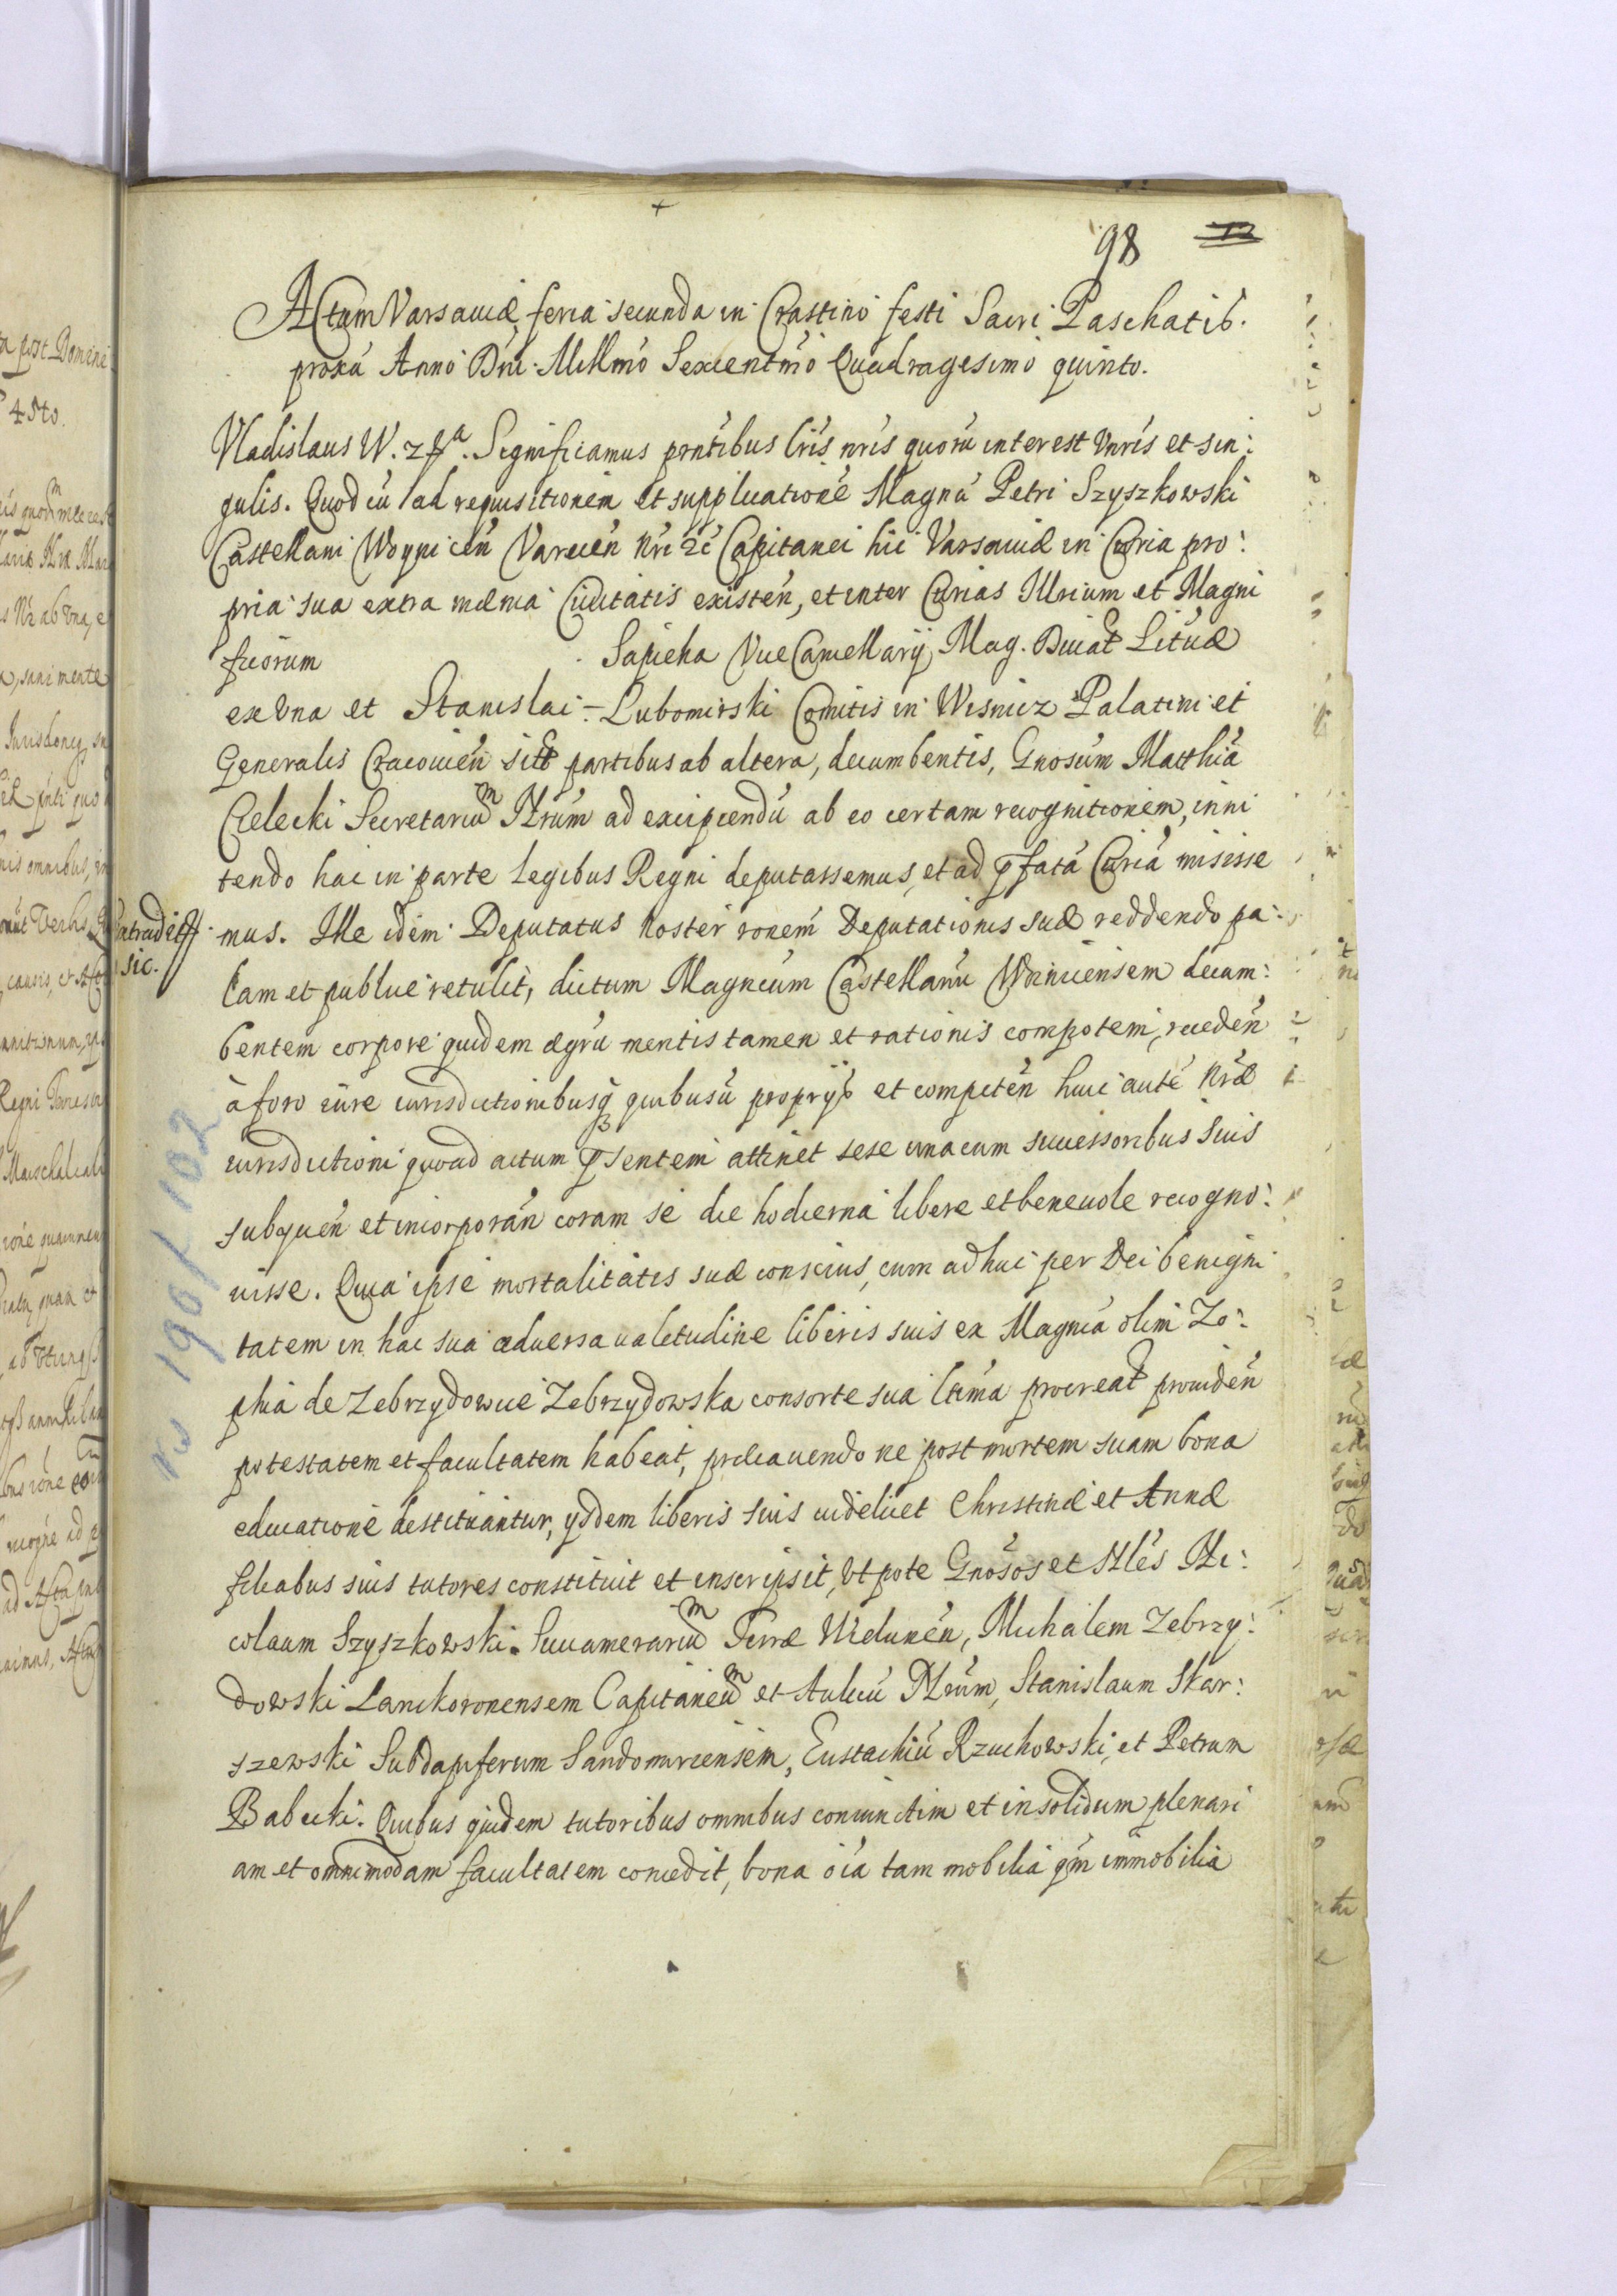 98 12
Actum Varsauiæ feria secunda in Crastino festi Sacri Paschatis
proxá Anno Dni Millmo Sexcentmo Quadragesimo quinto.
Vladislaus IV. Significamus pntibus lris nris quorú interest vnris et sin:
gulis. Quod cú ad requisitionem et supplicationé Magnci Petri Szyszkowski
Castellani Woynicén Varecén Nri Capitanei hic Varsauiæ in Curia pro:
pria sua extra mænia Ciuitatis existén, et inter Curias Illrium et Magni
ficorum Sapieha ViceCancellarij Mag. Ducat Lituæ
ex vna et Stanislai Lubomirski Comitis in Wisnicz Palatini et
Generalis Cracouién sitæ partibus ab altera, decumbentis, Gnosum Matthiá
Cielecki Secretariú Nrúm ad excipiendú ab eo certam recognitionem, inni
tendo hac in parte legibus Regni deputassemus, et ad pfatá Curiá misisse
mus. Ille idem Deputatus Noster ronem Deputationis suæ reddendo pa:
lam et publice retulit, dictum Magncum Castellanú Woinicensem decum:
bentem corpore quidem ægrú mentis tamen et rationis compotem, recedén
à foro iure iurisdictionibusq quibusú proprijs et competén huic auté Nræ
iurisdictioni quoad actum psentem attinet sese unacum successoribus suis
subijcién et incorporán coram se die hodierna libere et beneuole recogno:
uisse. Quia ipse mortalitatis suæ conscius, cum adhuc per Dei benigni
tatem in hac sua aduersa ualetudine liberis suis ex Magnca olim Zo:
phia de Zebrzydowice Zebrzydowska consorte sua ltima procreat prouidén
potestatem et facultatem habeat, præcauendo ne post mortem suam bona
educatione destituantur, ijsdem liberis suis uidelicet Christinæ et Annæ
filiabus suis tutores constituit et inscripsit, vtpote Gnosos et Nles Ni:
colaum Szyszkowski Succamerariúm Terræ Wielunén, Michalem Zebrzy:
dowski Lanckoronensem Capitaneúm et Aulicú Nrúm, Stanislaum Skar:
szewski Subdapiferum Sandomiriensem, Eustachiú Rzuchowski, et Petrum
Babecki. Quibus quidem tutoribus omnibus coniunctim et insolidum plenari
am et omnimodam facultatem concedit, bona oia tam mobilia qm immobilia
sic.
190/102